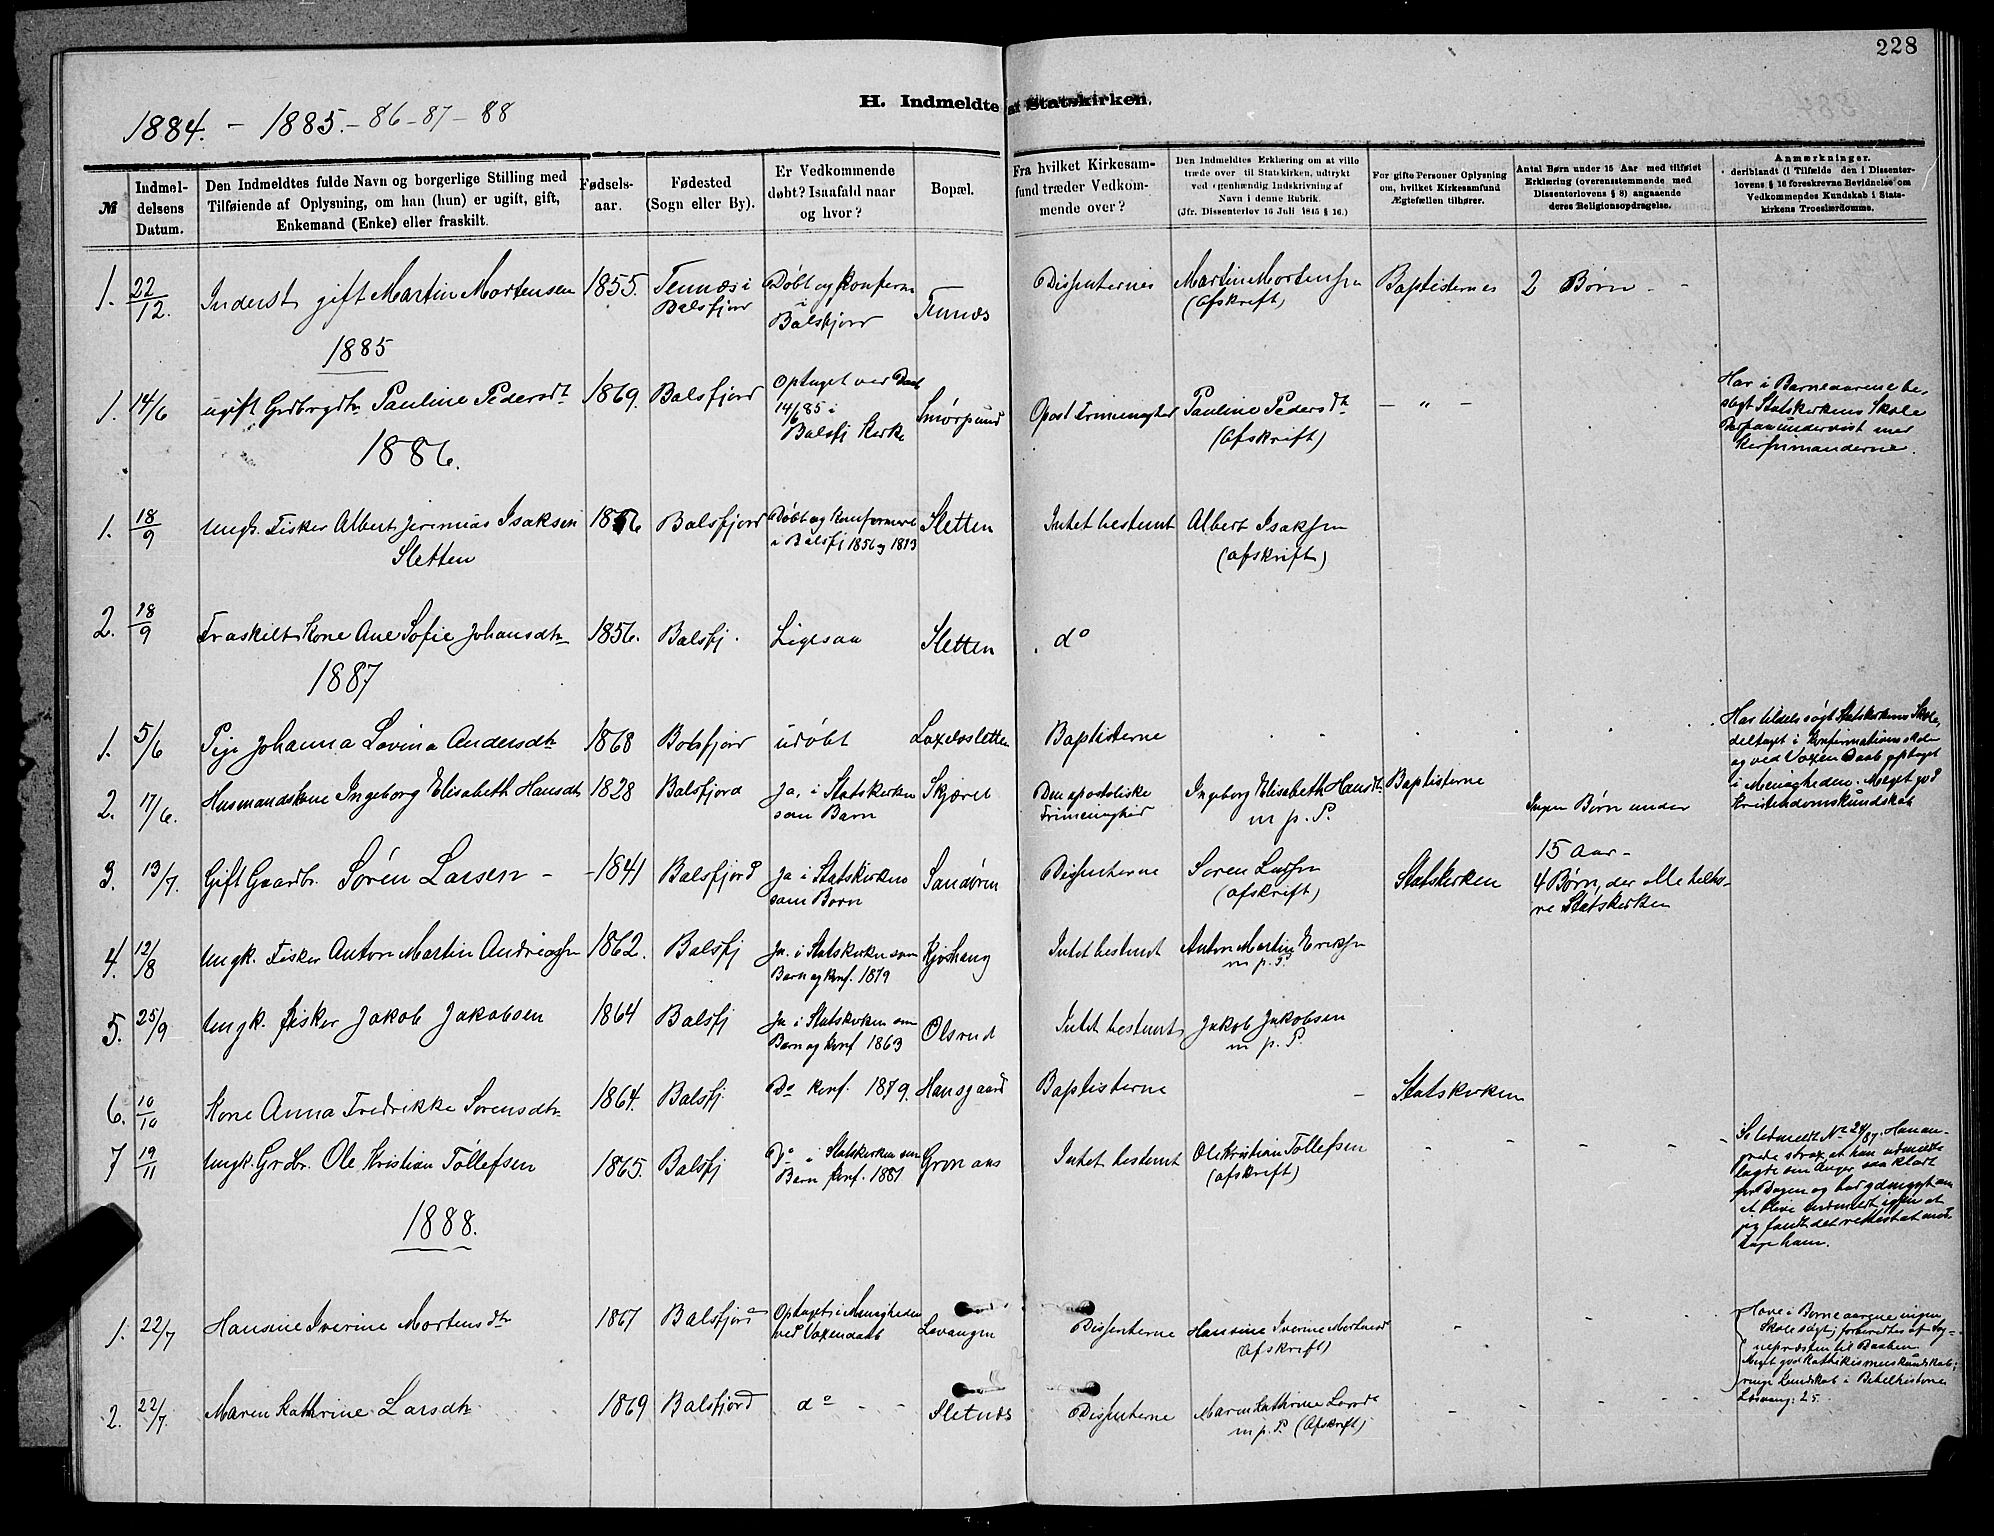 228
H. Indmeldte af Statskirken.
1884. - 1885. - 86 - 87 - 88
№
Indmeldelsens Datum.
Den Indmeldtes fulde Navn og borgerlige Stilling med
Tilføiende af Oplysning, om han (hun) er ugift, gift,
Enkemand (Enke) eller fraskilt.
Fødselsaar.
Fødested
(Sogn eller By).
Er Vedkommende
døbt? Isaafald naar
og hvor?
Bopæl.
Fra hvilket Kirkesam-
fund træder Vedkom-
mende over?
Den Indmeldtes Erklæring om at ville
træde over til Statskirken, udtrykt
ved egenhændig Indskrivning af
Navn i denne Rubrik.
(Jfr. Dissenterlov 16 Juli 1845 § 16.)
For gifte Personer Oplysning
om, hvilket Kirkesamfund
Ægtefællen tilhører.
Antal Børn under 15 Aar med tilføiet
Erklæring (overensstemmende med
Dissenterlovens § 8) angaaende
deres Religionsopdragelse.
Anmærkninger.
deriblandt (i Tilfælde den i Dissenter-
lovens § 16 foreskrevne Bevidnelse om
Vedkommendes Kundskab i Stats-
kirkens Troeslærdomme.
1. 22/12. Inderst gift Martin Mortensen 1855. Tennæs i Balsfjord Døbt og konfirm i Balsfjord Tennæs Dissenternes Martin Mortensen (Afskrift) Baptisternes 2 Børn - -
1885
1. 14/6 ugift Grdbrgdtr Pauline Pedersdtr 1869. Balsfjord Optaget ved Daab 14/6 85 i Balsfj Kirke Frimenighed Pauline Pedersdtr (Afskrift) - " -
Har i Barneaarene be-
søgt Statskirkens Skole
1886.
1. 18/9 Ungk. Fisker Albert Jeremias Isaksen Sletten 1856 Balsfjord Døbt og konfirmeret i Balsfj 1856 og 1873 Sletten Intet bestemt Albert Isaksen (Afskrift)
2. 18/9 Fraskilt Kone Ane Sofie Johansdtr 1856. Balsfj. Ligesaa Sletten do
1887
1. 5/6 Pige Johanna Lovina Andersdtr 1868 Balsfjord udøbt Laxelvsletten Baptisterne
Har tildels søgt Statskirkens Skole,
deltaget i Konfirmationsskole
og ved Voxen Daab optaget
i Menigheden. Meget god
Kristendomskundskab
2. 17/6. Husmandskone Ingeborg Elisabeth Hansdtr 1828 Balsfjord Ja, i Statskirken som Barn Skjæret Den apostoliske Frimenighed Ingeborg Elisabeth Hansdtr. m. p. P. Baptisterne Ingen Børn under 15 Aar -
3. 13/7. Gift Gaardbr. Søren Larsen - - 1841 Balsfjord Ja i Statskirken som Barn Sandøren Dissenterne Søren Larsen (afskrift) Statskirken 4 Børn, der alle tilhø-
re Statskirken
4. 12/8 Ungk. Fisker Anton Martin Andreassen 1862. Balsfj Ja. i Statskirken som Barn og konf. 1879 Intet bestemt Anton Martin m. p. P.
5. 25/9 Ungk. Fisker Jakob Jakobsen 1864 Balsfj Ja i Statskirken som Barn og konf 1863 Olsrud Intet bestemt Jakob Jakobsen m. p. P.
6. 10/10 Kone Anna Fredrikke Sørensdtr 1864. Balsfj. Do konf. 1879. Hansgaard Baptisterne - Statskirken
7 19/11 Ungk. Grdbr. Ole Kristian Tollefsen 1865. Balsfj Do i Statskirken som Barn konf. 1881 Grønaas Intet bestemt Ole Kristian Tollefsen (Afskrift)
Se Udmeldt No 24/87. Han an-
grede strax at han udmeldte
lagde sin Anger saa klart
for Dagen og bad ydmygst om
at blive indmeldt igjen at
jeg fandt det rettest at mod-
tage ham.
1888.
1. 22/7 Hansine Iverine Mortensdtr 1867 Balsfjord Optaget i Menigheden ved Voxendaab Lavangen Dissenterne Hansine Iverine Mortensd (Afskrift)
Have i Barneaarene ingen
Skole søgt; forberedtes af Sog-
nepræsten til Daaben.
Meget god Kathekismuskundskab;
ringe Kundskab i Bibelhistorie
2. 22/7. Maren Kathrine Larsdtr. 1869 Balsfjord do - - Sletnæs Dissenterne Maren Kathrine Larsd m. p. P. (Afskrift)